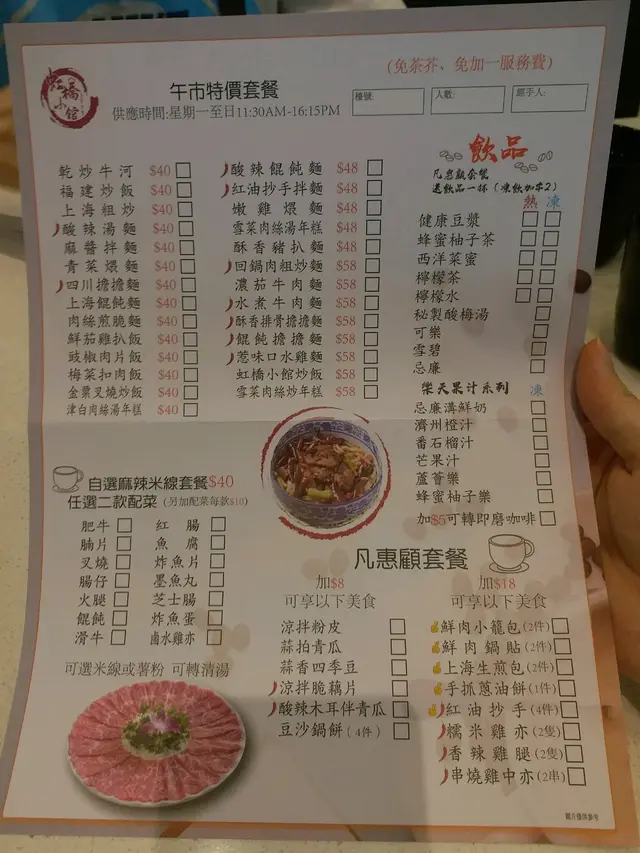 (免茶芥、免加一服務費)
虹橋小館
午市特價套餐
供應時間:星期一至日11:30AM-16:15PM
檯號:
人數:
經手人:
乾炒牛河 $40
福建炒飯 $40
上海粗炒 $40
酸辣湯麵 $40
麻醬拌麵 $40
青菜煨麵 $40
四川擔擔麵 $40
上海餛飩麵 $40
肉絲煎脆麵 $40
鮮茄雞扒飯 $40
豉椒肉片飯 $40
梅菜扣肉飯 $40
金粟叉燒炒飯 $40
津白肉絲湯年糕 $40
酸辣餛飩麵 $48
紅油抄手拌麵 $48
嫩雞煨麵 $48
雪菜肉絲湯年糕 $48
酥香豬扒麵 $48
回鍋肉粗炒麵 $58
濃茄牛肉麵 $58
水煮牛肉麵 $58
酥香排骨擔擔麵 $58
餛飩擔擔麵 $58
惹味口水雞麵 $58
虹橋小館炒飯 $58
雪菜肉絲炒年糕 $58
飲品
凡惠顧套餐
送飲品一杯(凍飲加$2)
熱 凍
健康豆漿
蜂蜜柚子茶
西洋菜蜜
檸檬茶
檸檬水
秘製酸梅湯
可樂
雪碧
忌廉
樂天果汁系列 凍
忌廉溝鮮奶
濟州橙汁
番石榴汁
芒果汁
蘆薈樂
蜂蜜柚子樂
加$5可轉即磨咖啡
自選麻辣米線套餐$40
任選二款配菜 (另加配菜每款$10)
肥牛 紅腸
腩片 魚腐
叉燒 炸魚片
腸仔 墨魚丸
火腿 芝士腸
餛飩 炸魚蛋
滑牛 鹵水雞亦
可選米線或薯粉 可轉清湯
凡惠顧套餐
加$8
可享以下美食
涼拌粉皮
蒜拍青瓜
蒜香四季豆
涼拌脆藕片
酸辣木耳伴青瓜
豆沙鍋餅(4件)
加$18
可享以下美食
鮮肉小籠包(2件)
鮮肉鍋貼(2件)
上海生煎包(2件)
手抓蔥油餅(1件)
紅油抄手(4件)
糯米雞亦(2隻)
香辣雞腿(2隻)
串燒雞中亦(2串)
圖片僅供參考